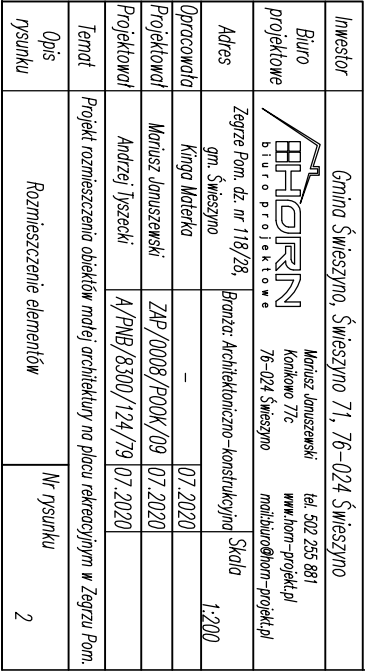 Inwestor Gmina Świeszyno, Świeszyno 71, 76-024 Świeszyno
Biuro projektowe
HORN
biuro projektowe
Mariusz Januszewski tel. 502 255 881
Konikowo 77c www.horn-projekt.pl
76-024 Świeszyno mail:biuro@horn-projekt.pl
Adres Zegrze Pom. dz. nr 118/28, Branża: Architektoniczno-konstrukcyjna Skala
gm. Świeszyno 1:200
Opracowała Kinga Materka - 07.2020
Projektował Mariusz Januszewski ZAP/0008/POOK/09 07.2020
Projektował Andrzej Tyszecki A/PNB/8300/124/79 07.2020
Temat Projekt rozmieszczenia obiektów małej architektury na placu rekreacyjnym w Zegrzu Pom.
Opis rysunku Rozmieszczenie elementów Nr rysunku
2